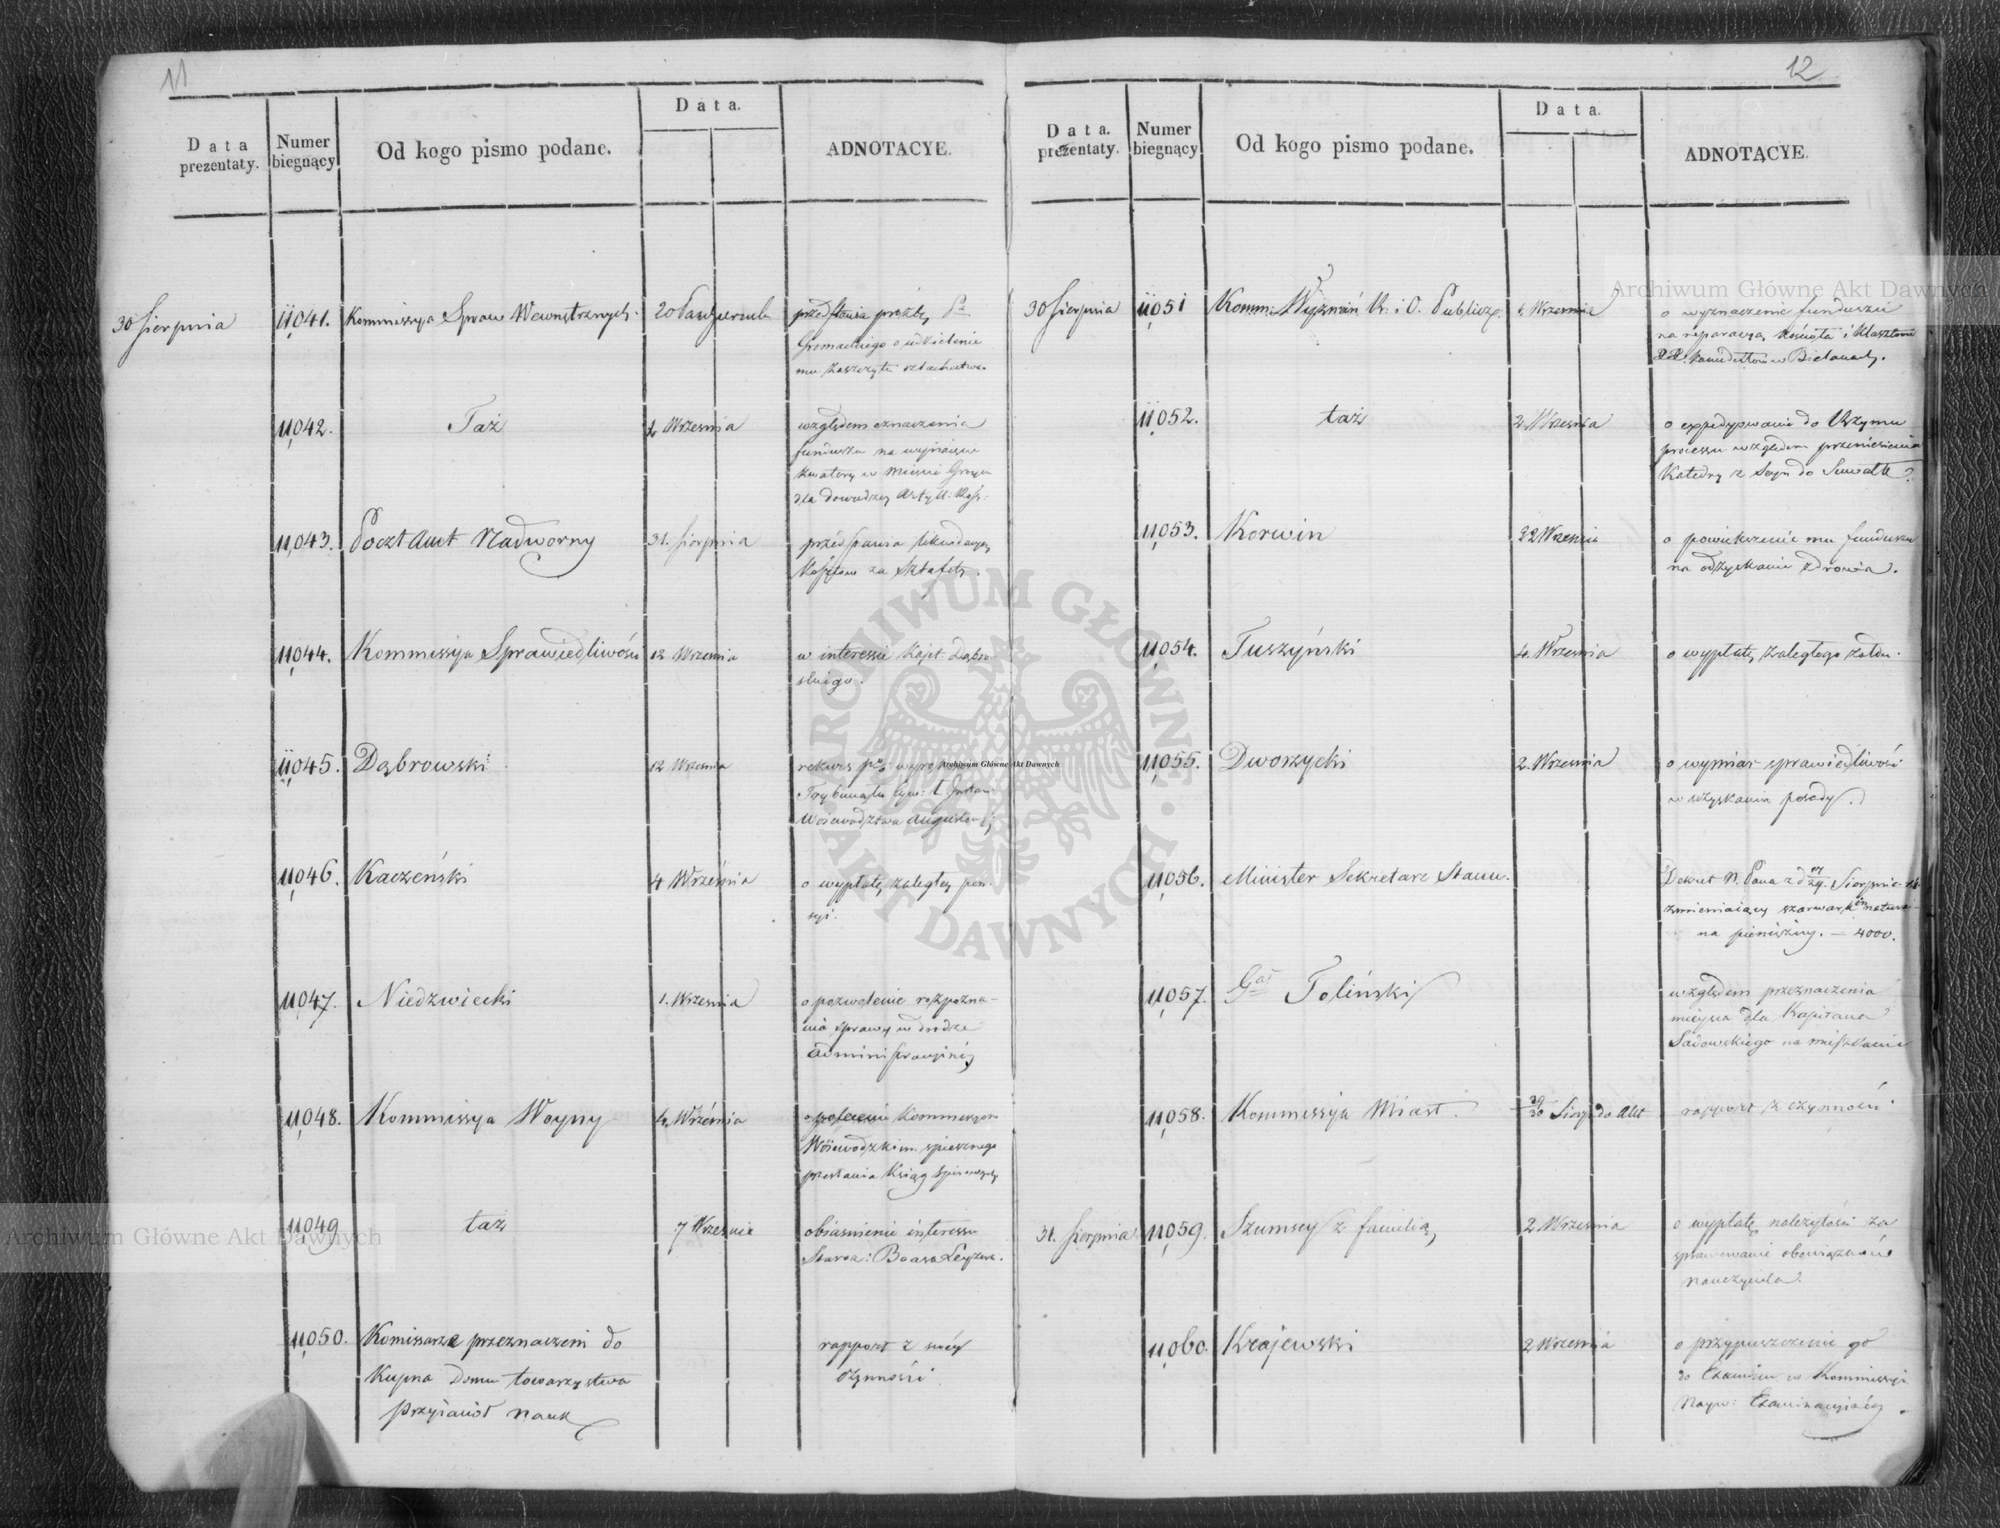 11
Data prezentaty.
Numer biegnący
Od kogo pismo podane.
Data.
ADNOTACYE.
30 Sierpnia
11,041.
Kommissya Spraw Wewnętrznych.
20 Październik
przedstawia prośbę Pa
Gromadzkiego o udzielenie
mu zaszczytu szlachectwa
11,042.
Taż
2 Września
względem oznaczenia
funduszu na wynajęcie
kwatery w Mieście
dla dowódzcy Artyll: Rossy:
11,043.
Poczt Amt Nadworny
31. Sierpnia
przedstawia likwidacyą
Kosztów za Sztafety.
11,044.
Kommissya Sprawiedliwości
12 Września
w interessie Kajet Dąbro
skiego.
11,045.
Dąbrowski
12 Września
rekurs
Trybunału Cyw: I Instan:
Województwa August
11,046.
Kaczeński
4 Września
o wypłatę zaległey pen-
syi.
11,047.
Niedzwiecki
1. Września
o pozwolenie rozpozna-
nia sprawy w drodze
Administracyinéy
11,048.
Kommissya Woyny
4, Września
o polecenie Kommissyom
Woiewodzkim spiesznego
przesłania Ksiąg Spisowych
11,049
taż
7 Września
obiaśnienie interessu
Staroz: Leyzera.
11,050.
Komissarze przeznaczeni do
Kupna Domu towarzystwa
przyiaciół nauk
rapport z swéy
czynności
12
Data. prezentaty.
Numer biegnący
Od kogo pismo podane.
Data.
ADNOTACYE.
30 Sierpnia
11,051
Komm: Wyznań R: i O. Publiczn.
1, Września
o wyznaczenie funduszu
na reparacyą Kościoła i Klasztoru
XX. Kamedułów w Bielanach.
11,052.
taż
2. Września
o expedyowanie do Rzymu
processu względem przeniesienia
Katedry z Seyn do Suwałk?
11,053.
Korwin
22 Wrzesnia
o powiększenie mu funduszu
na odzyskanie zdrowia.
11,054.
Tuszyński
4. Września
o wypłatę zaległego żołdu.
11,055.
Dworzycki
2. Września
o wymiar sprawiedliwości
w uzyskaniu posady.
11,056.
Minister Sekretarz Stanu.
Dekret N. Pana z d 17/29. Sierpnia
zmieniaiący szarwark in natura
na pieniężny. — 4000.
11,057.
Gał Toliński
względem przeznaczenia
mieysca dla Kapitana
Sadowskiego na mieszkanie
11,058.
Kommissya Miast.
29/30 Sierp do Akt
rapport z czynności
31. Sierpnia
11,059.
Szumscy z familią
2 Września
o wypłatę należytości za
sprawowanie obowiązków
nauczyciela.
11,060.
Krajewski
2 Września
o przypuszczenie go
do Examinu w Kommissyi
Nayw: Examinacyinéy
Archiwum Główne Akt Dawnych
Archiwum Główne Akt Dawnych
Archiwum Główne Akt Dawnych
ARCHIWUM GŁÓWNE · AKT DAWNYCH ·